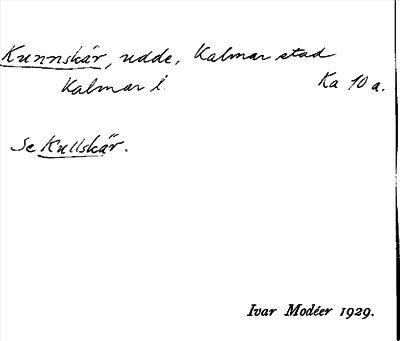 Kunnskär, udde, Kalmar stad
Kalmar l. Ka 10 a.
Se Kullskär.
Ivar Modéer 1929.